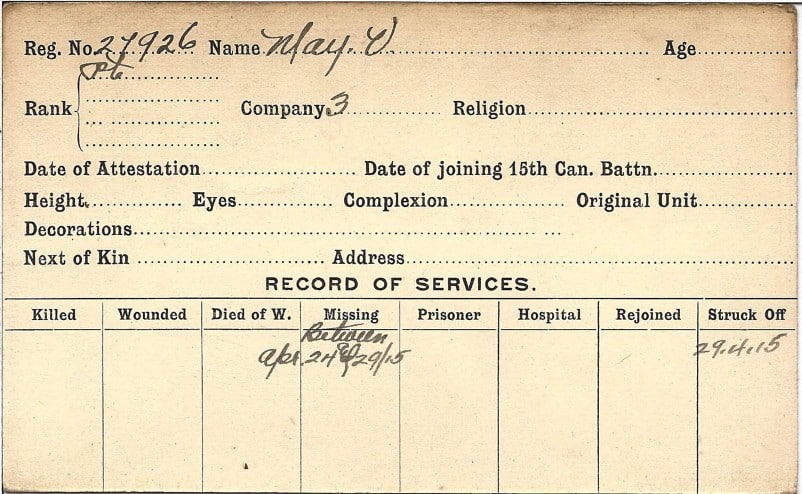 Reg. No. 27926 Name May. V Age
Pte
Rank Company 3 Religion
Date of Attestation Date of joining 15th Can. Battn.
Height Eyes Complexion Original Unit
Decorations
Next of Kin Address
RECORD OF SERVICES.
Killed Wounded Died of W. Missing Prisoner Hospital Rejoined Struck Off
Between
Apr. 24 & 29/15 29.4.15